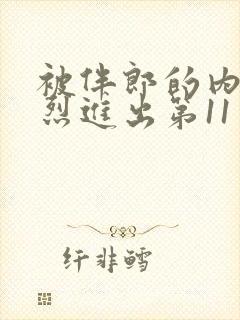 被伴郎的内
烈进出第11
纤非鳕